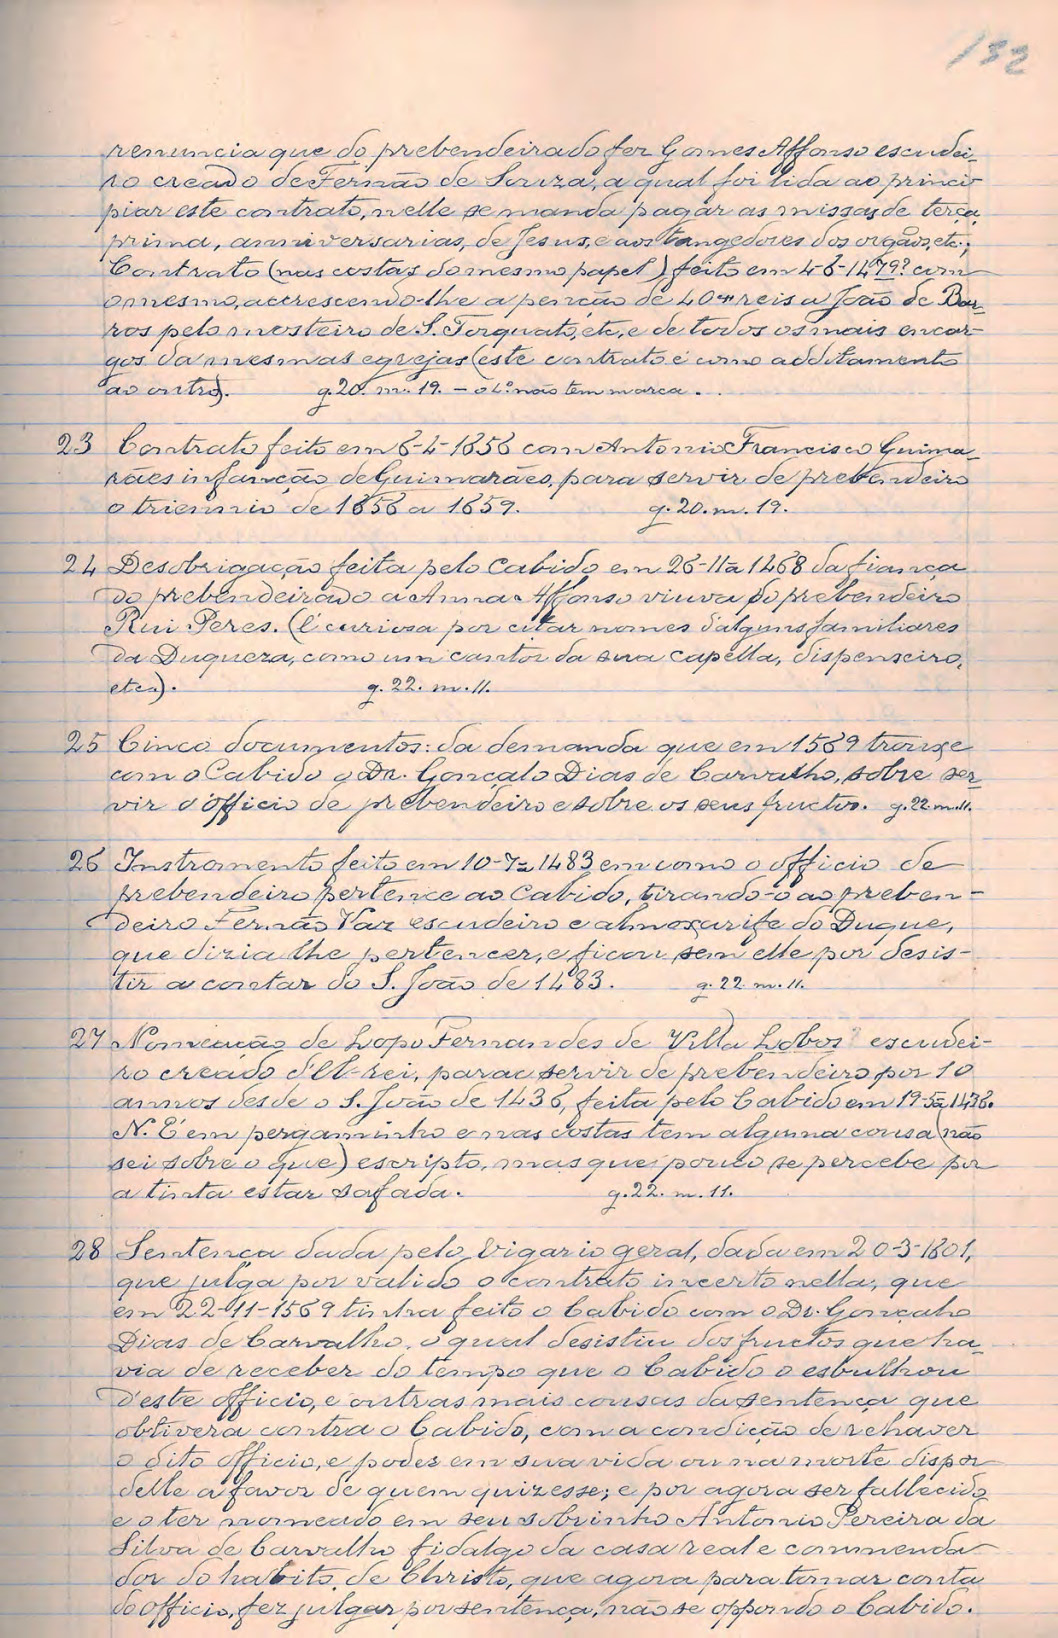 132
renuncia que do prebendeirado fez Gomes Affonso escudei-
ro creado de Fernão de Souza, a qual foi lida ao princi-
piar este contrato, nelle se manda pagar as missas de terça,
prima, anniversarias, de Jesus, e aos tangedores dos orgãos, etc.;
Contrato (nas costas do mesmo papel) feito em 4-6-1479? com
o mesmo, accrescendo-lhe a penção de 40 reis a João de Bar-
ros pelo mosteiro de S. Torquato, etc, e de todos os mais encar-
gos da mesmas egrejas (este contrato é como additamento
ao outro). g. 20. m. 19. – o L.º não tem marca...
23 Contrato feito em 6-4-1656 com Antonio Francisco Guima-
rães infanção de Guimarães, para servir de prebendeiro
o triennio de 1656 a 1659. g. 20. m. 19.
24 Desobrigação feita pelo Cabido em 26-11-1468 da fiança
do prebendeirado a Anna Affonso viuva do prebendeiro
Rui Peres. (É curiosa por citar nomes d'alguns familiares
da Duqueza, como um cantor da sua capella, dispenseiro,
etc.). g. 22. m. 11.
25 Cinco documentos: da demanda que em 1569 trouxe
com o Cabido o Dr. Gonçalo Dias de Carvalho, sobre ser-
vir o officio de prebendeiro e sobre os seus fructos. g. 22. m. 11.
26 Instromento feito em 10-7-1483 em como o officio de
prebendeiro pertence ao Cabido, tirando-o ao preben-
deiro Fernão Vaz escudeiro e almoxarife do Duque,
que dizia lhe pertencer, e ficou sem elle por desis-
tir a contar do S. João de 1483. g. 22. m. 11.
27 Nomeação de Lopo Fernandes de Villa Lobos escudei-
ro creado d'El-rei, para servir de prebendeiro por 10
annos desde o S. João de 1436, feita pelo Cabido em 19-5-1436.
N. É em pergaminho e nas costas tem alguma cousa (não
sei sobre o que) escripto, mas que pouco se percebe por
a tinta estar safada. g. 22. m. 11.
28 Sentença dada pelo Vigario geral, dada em 20-3-1601,
que julga por valido o contrato incerto nella, que
em 22-11-1569 tinha feito o Cabido com o Dr. Gonçalo
Dias de Carvalho, o qual desistiu dos fructos que ha-
via de receber do tempo que o Cabido o esbulhou
d'este officio, e outras mais cousas da sentença que
obtivera contra o Cabido, com a condição de rehaver
o dito officio, e poder em sua vida ou na morte dispor
delle a favor de quem quizesse; e por agora ser fallecido
e o ter nomeado em seu sobrinho Antonio Pereira da
Silva de Carvalho fidalgo da casa real e commenda-
dor do habito de Christo, que agora para tomar conta
do officio, fez julgar por sentença, não se oppondo o Cabido.